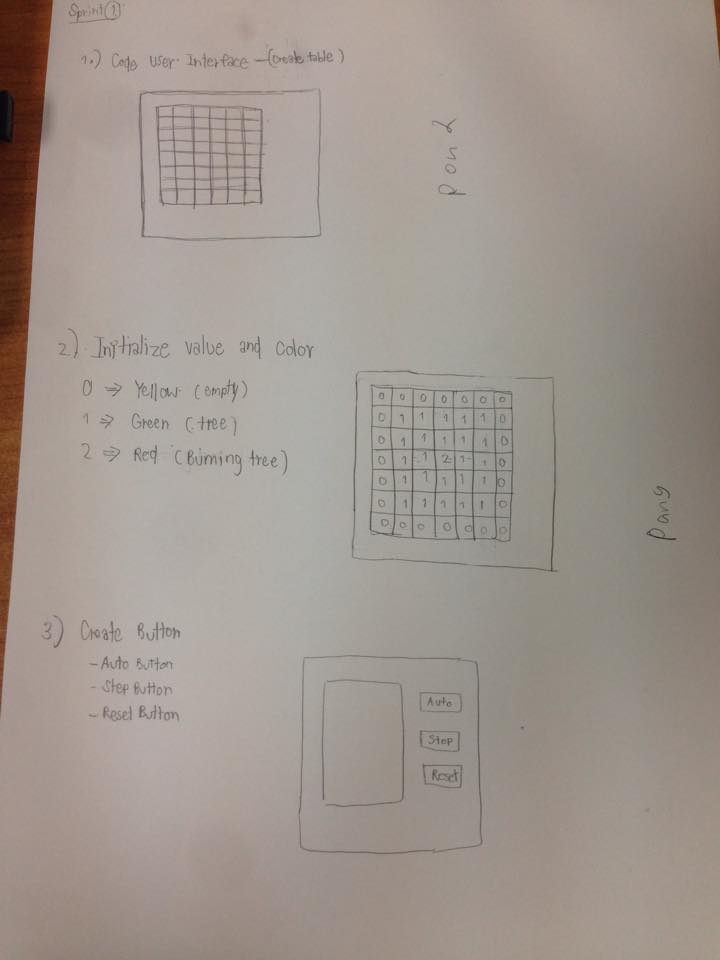 Sprint ①
1.) Code User Interface – (Create table)
Pond
2.) Initialize value and color
0 ⇒ Yellow (empty)
1 ⇒ Green (tree)
2 ⇒ Red (Burning tree)
0 0 0 0 0 0 0
0 1 1 1 1 1 0
0 1 1 1 1 1 0
0 1 1 2 1 1 0
0 1 1 1 1 1 0
0 1 1 1 1 1 0
0 0 0 0 0 0 0
Pang
3) Create Button
– Auto Button
– Step Button
– Reset Button
Auto
Step
Reset